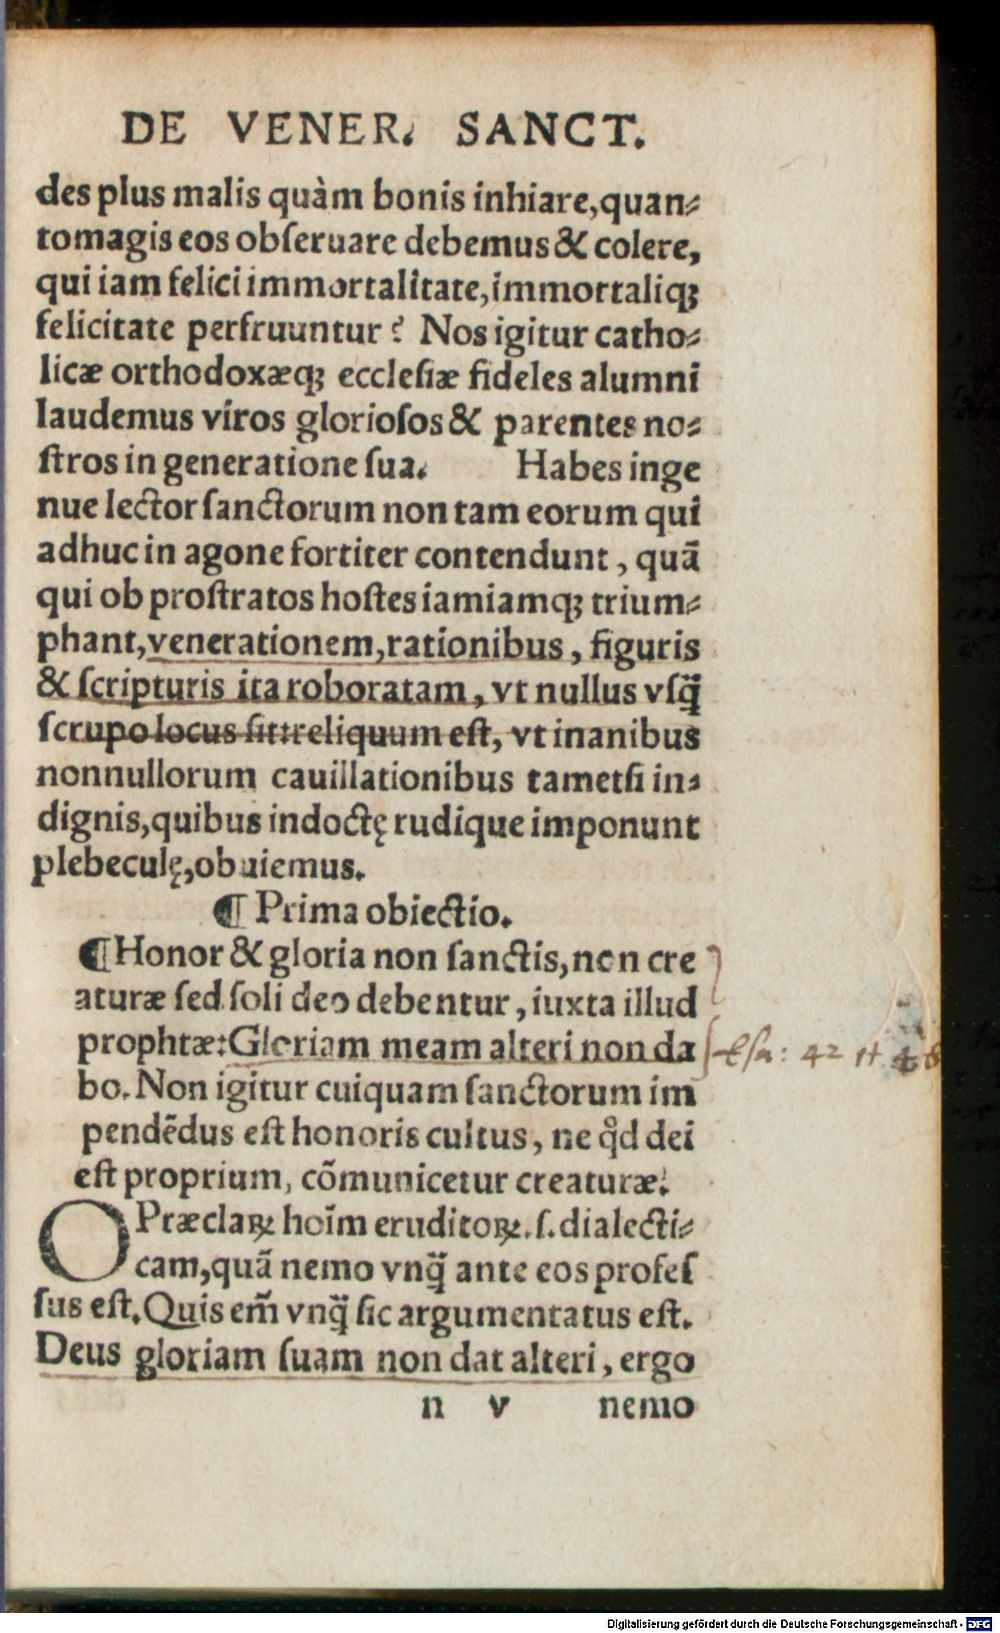 DE VENER. SANCT.
des plus malis quàm bonis inhiare,quan⸗
tomagis eos obſeruare debemus & colere,
qui iam felici immortalitate,immortaliqꝫ
felicitate perfruuntur? Nos igitur catho⸗
licæ orthodoxæqꝫ eccleſiæ fideles alumni
laudemus viros glorioſos & parentes no⸗
ſtros in generatione ſua. Habes inge
nue lector ſanctorum non tam eorum qui
adhuc in agone fortiter contendunt, quã
qui ob proſtratos hoſtes iamiamqꝫ trium⸗
phant,venerationem,rationibus, figuris
& ſcripturis ita roboratam, vt nullus vſq̃
ſcrupo locus ſit:reliquum eſt, vt inanibus
nonnullorum cauillationibus tametſi in⸗
dignis,quibus indoctę rudique imponunt
plebeculę,obuiemus.
¶ Prima obiectio.
¶Honor & gloria non ſanctis,non cre
aturæ ſed ſoli deo debentur, iuxta illud
prophtæ:Gloriam meam alteri non da
Esa: 42 et 48
bo. Non igitur cuiquam ſanctorum im
pendẽdus eſt honoris cultus, ne qͥd dei
eſt proprium, cõmunicetur creaturæ.
OPræclaꝝ hoĩm eruditoꝝ.ſ.dialecti⸗
cam,quã nemo vnq̃ ante eos profeſ
ſus eſt. Quis em̃ vnq̃ ſic argumentatus eſt.
Deus gloriam ſuam non dat alteri, ergo
n v nemo
Digitalisierung gefördert durch die Deutsche Forschungsgemeinschaft - DFG